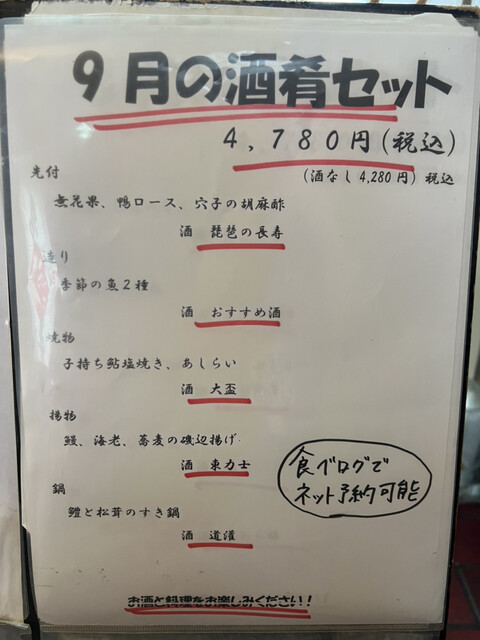 9月の酒肴セット
4,780円(税込)
(酒なし4,280円) 税込
先付
無花果、鴨ロース、穴子の胡麻酢
酒 琵琶の長寿
造り
季節の魚2種
酒 おすすめ酒
焼物
子持ち鮎塩焼き、あしらい
酒 大盃
揚物
鰻、海老、蕎麦の磯辺揚げ
酒 東力士
鍋
鱧と松茸のすき鍋
酒 道灌
食べログで
ネット予約可能
お酒と料理をお楽しみください!